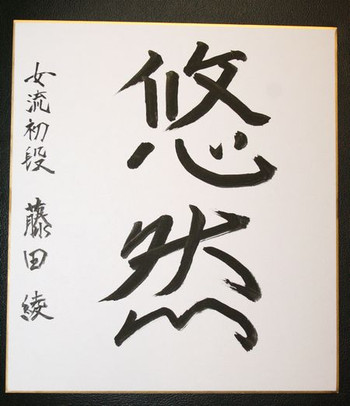 悠然
女流初段 藤田 綾